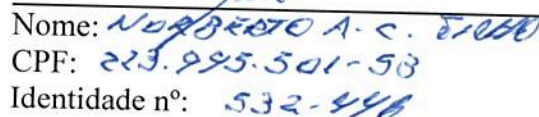 Nome: NORBERTO A. C. FILHO
CPF: 223.995.501-53
Identidade nº: 532-446